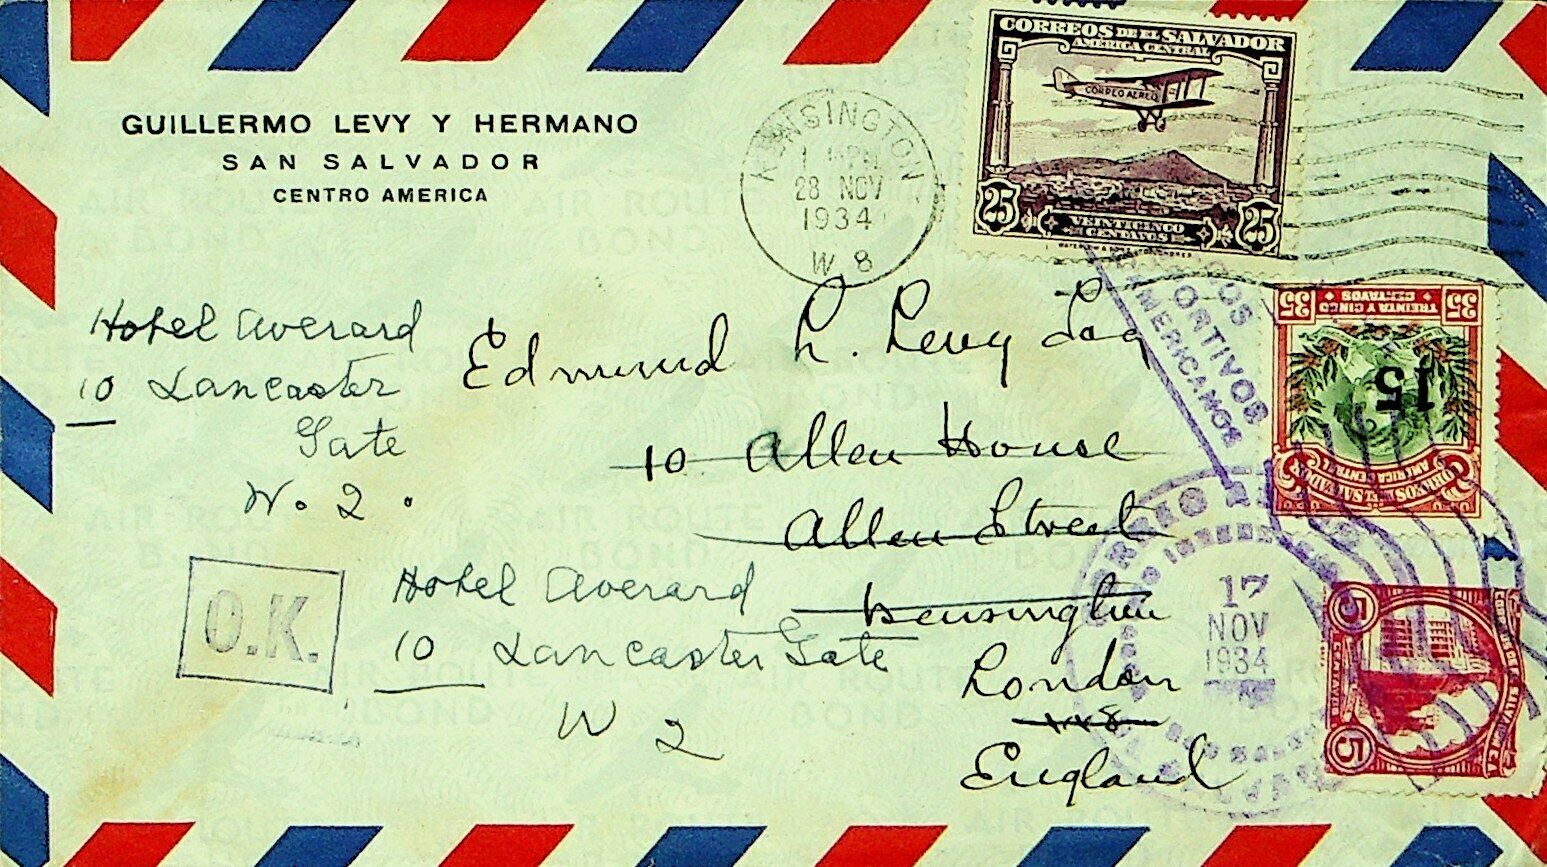 GUILLERMO LEVY Y HERMANO
SAN SALVADOR
CENTRO AMERICA
KENSINGTON
28 NOV
1934
W 8
CORREOS DE EL SALVADOR
AMERICA CENTRAL
CORREO AEREO
25 25
VEINTICINCO
CENTAVOS
Edmund L. Levy Esq
10 Allen House
Allen Street
Kensington
London
W8
England
Hotel Averard
10 Lancaster
Gate
W. 2.
Hotel Averard
10 Lancaster Gate
W 2
O.K.
DEPORTIVOS
AMERICANOS
35 35
TREINTA Y CINCO
CENTAVOS
15
CORREOS DE EL SALVADOR
AMERICA CENTRAL
CORREO
17
NOV
1934
SAN SALVADOR
5 5
AIR ROUTE
BOND